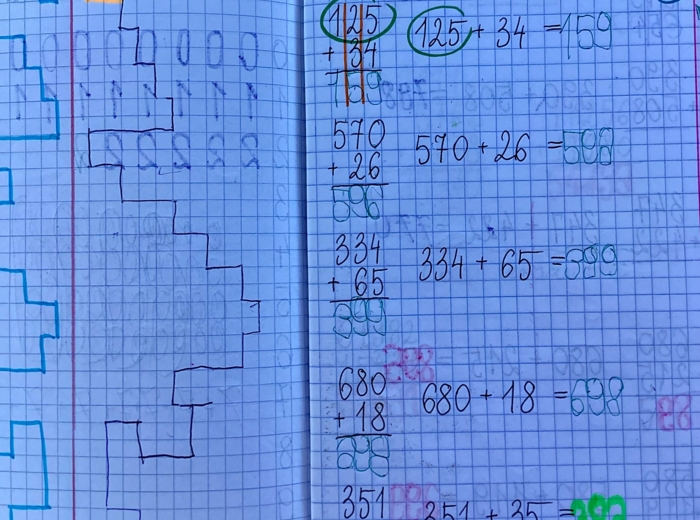 125
+ 34
159
125 + 34 = 159
570
+ 26
596
570 + 26 = 596
334
+ 65
399
334 + 65 = 399
680
+ 18
698
680 + 18 = 698
351
351 + 35 =
0 0 0 0 0 0
1 1 1 1 1 1 1
2 2 2 2 2 2